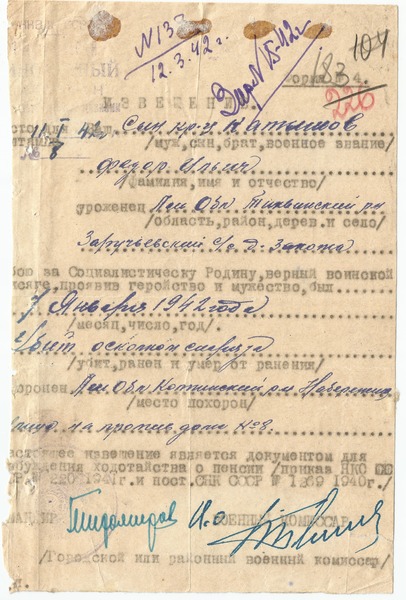 N 133
12.3.42 г.
104
183
226
орма № 4.
ИЗВЕЩЕНИ
сын кр-ц Катышов
/муж,сын,брат,военное звание/
Федор Ильич
/фамилия,имя и отчество/
уроженец Лен Обл Тихвинский рн
/область,район,дерев.и село/
Заручьевский с/с д.
бою за Социалистическу Родину,верный воинской
сяге,проявив геройство и мужество,был
7 Января 1942 года
/месяц,число,год/
Убит осколком снаряда
/убит,ранен и умер от ранения/
оронен Лен Обл рн
/место похорон/
на против дома № 8.
астоящее извещение является документом для
буждения ходотайства о пенсии /приказ НКО
Р 220 1941г.и пост.СНК СССР № 1269 1940г./
Тихомиров
ВОЕННЫЙ КОМИССАР
/Городской или районный военный комиссар/